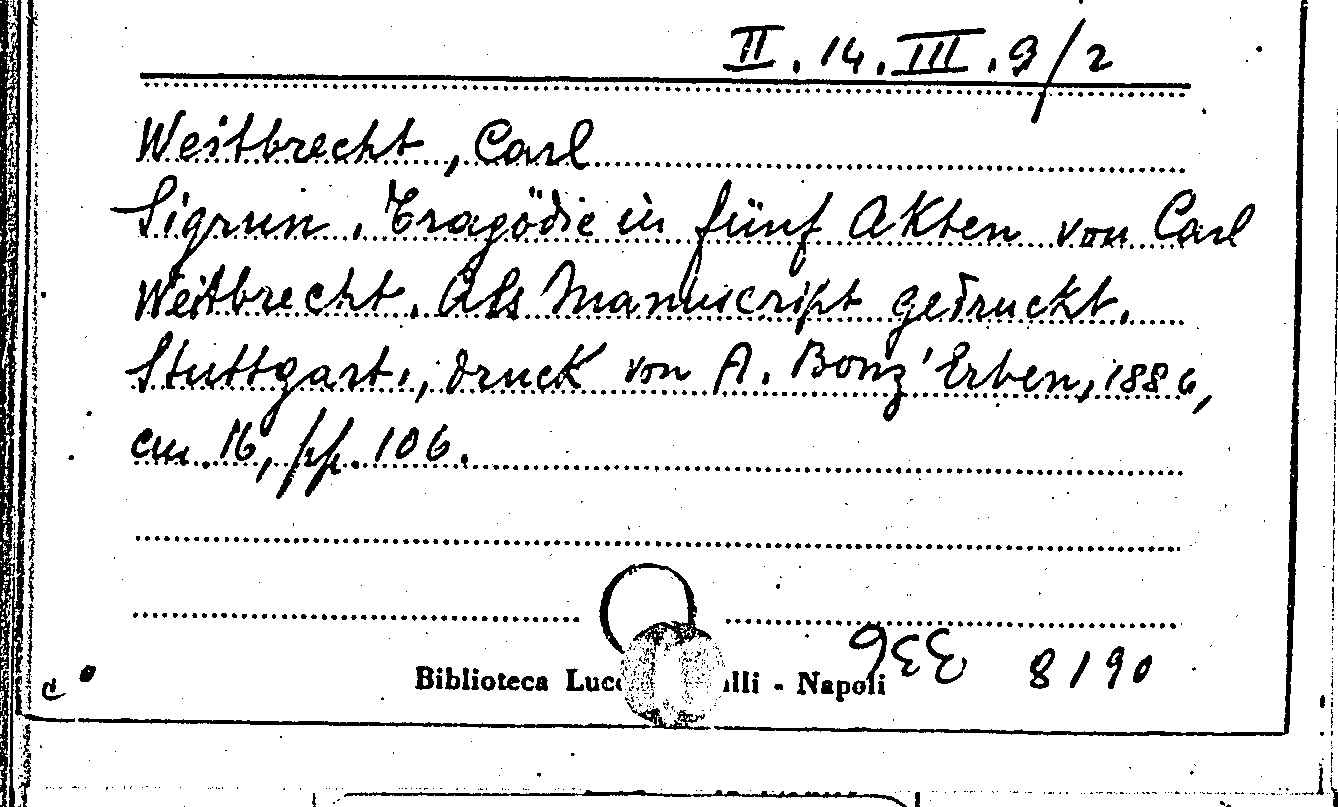 II. 14. III. 9/2
Weitbrecht, Carl
Sigrun. Tragödie in fünf Akten von Carl
Weitbrecht. Als Manuscript gedruckt.
Stuttgart., Druck von A. Bonz' Erben, 1886,
cm. 16, pp. 106.
Biblioteca - Napoli
8190